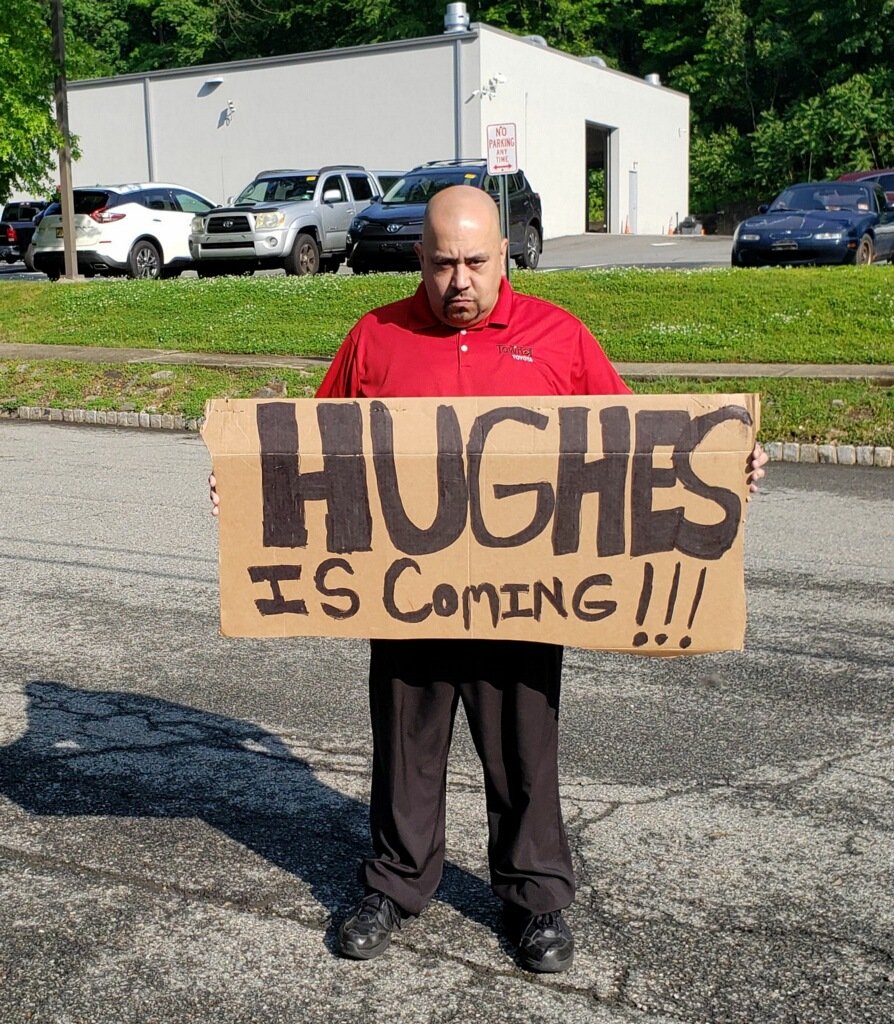 NO
PARKING
ANY
TIME
TOYOTA
HUGHES
IS COMING!!!